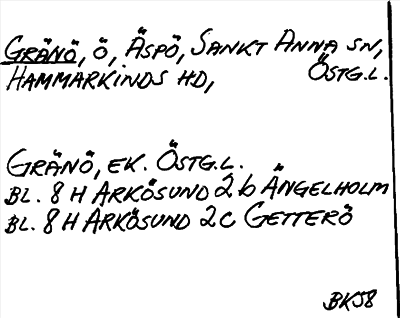 GRÄNÖ, Ö, ÄSPÖ, SANKT ANNA SN,
HAMMARKINDS HD, ÖSTG.L.
GRÄNÖ, EK. ÖSTG.L.
BL. 8 H ARKÖSUND 2 b ÄNGELHOLM
BL. 8 H ARKÖSUND 2C GETTERÖ
BK58